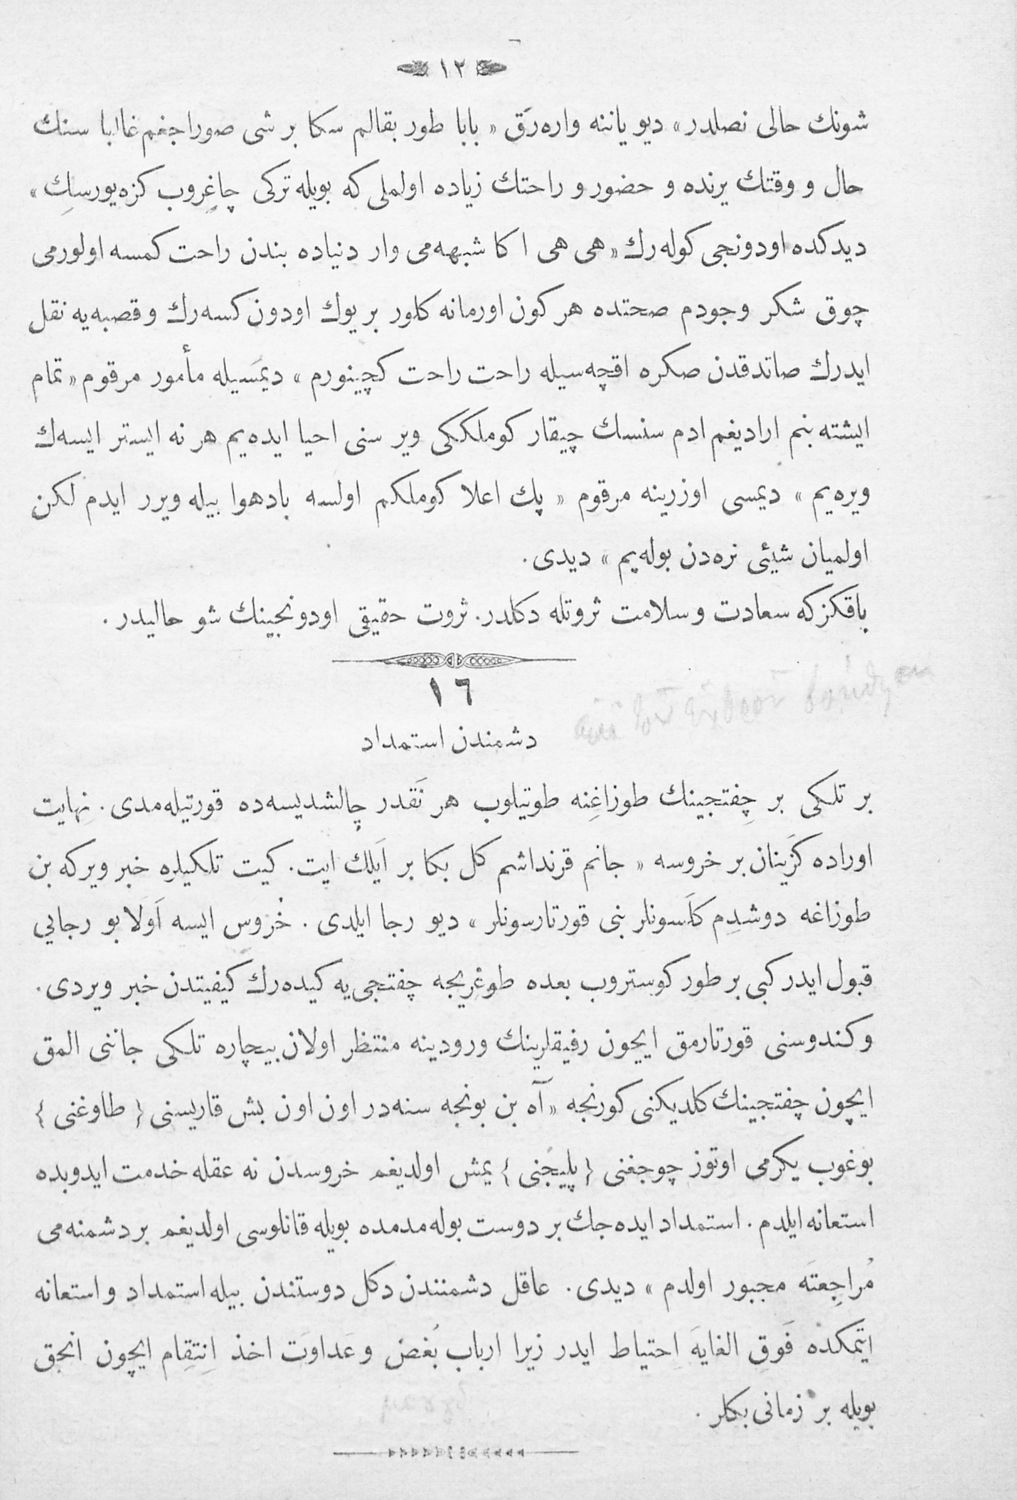 ١٢
شونك حالى نصلدر» ديو ياننه واره‌رَق « بابا طور بقالم سكا بر شى صوراجغم غالبا سنك
حال و وقتك يرنده و حضور و راحتك زياده اولملى كه بويله تركى چاغِروب كزه‌يورسكِ»
ديدكده اودونجى كوله‌رك «هى هى ا كا شبهه‌مى وار دنياده بندن راحت كمسه اولورمى
چوق شكر وجودم صحتده هر كون اورمانه كلور بر يوك اودون كسه‌رك و قصبه‌يه نقل
ايدرك صاتدقدن صكره اقچه‌سيله راحت راحت كچينورم » ديمَسيله مأمور مرقوم « تمام
ايشته بنم اراديغم ادم سنسك چيقار كوملككى وير سنى احيا ايده‌يم هر نه ايستر ايسه‌ك
ويره‌يم » ديمسى اوزرينه مرقوم « پك اعلا كوملكم اولسه بادهوا بيله ويرر ايدم لكن
اولميان شيئى نره‌دن بوله‌يم » ديدى.
باقكزكه سعادت و سلامت ثروتله دكلدر. ثروت حقيقى اودونجينك شو حاليدر.
١٦
دشمندن استمداد
بر تلكى بر چِفتجينك طوزاغِنه طوتيلوب هر نَقدر چالِشديسه‌ده قورتيله‌مدى. نهايت
اوراده كَزينان بر خروسه « جانم قرنداشم كل بكا بر اَيلك ايت. كيت تلكيلره خبر ويركه بن
طوزاغه دوشدِم كَلسونلر بنى قورتارسونلر » ديو رجا ايلدى. خُروس ايسه اَولا بو رجايي
قبول ايدر كبى بر طور كوستروب بعده طوغريجه چفتجى‌يه كيده‌رك كيفيتدن خبر ويردى.
و كندوسنى قورتارمق ايچون رفيقلرينك ورودينه منتظر اولان بيچاره تلكى جاننى المق
ايچون چفتجينك كلديكنى كورنجه « آه بن بونجه سنه‌در اون اون بش قاريسنى { طاوغنى }
بوغوب يكرمى اوتوز چوجغنى { پليجنى } يمش اولديغم خروسدن نه عقله خدمت ايدوبده
استعانه ايلدم. استمداد ايده‌جك بر دوست بوله‌مدمده بويله قانلوسى اولديغم بر دشمنه‌مى
مُراجِعتَه مجبور اولدم » ديدى. عاقل دشمنندن دكل دوستندن بيله استمداد و استعانه
ايتمكده فَوقِ الغايهَ اِحتياط ايدر زيرا ارباب بُغض و عَداوَت اخذ اِنتِقِام ايچون انجق
بويله بر زمانى بكلر.